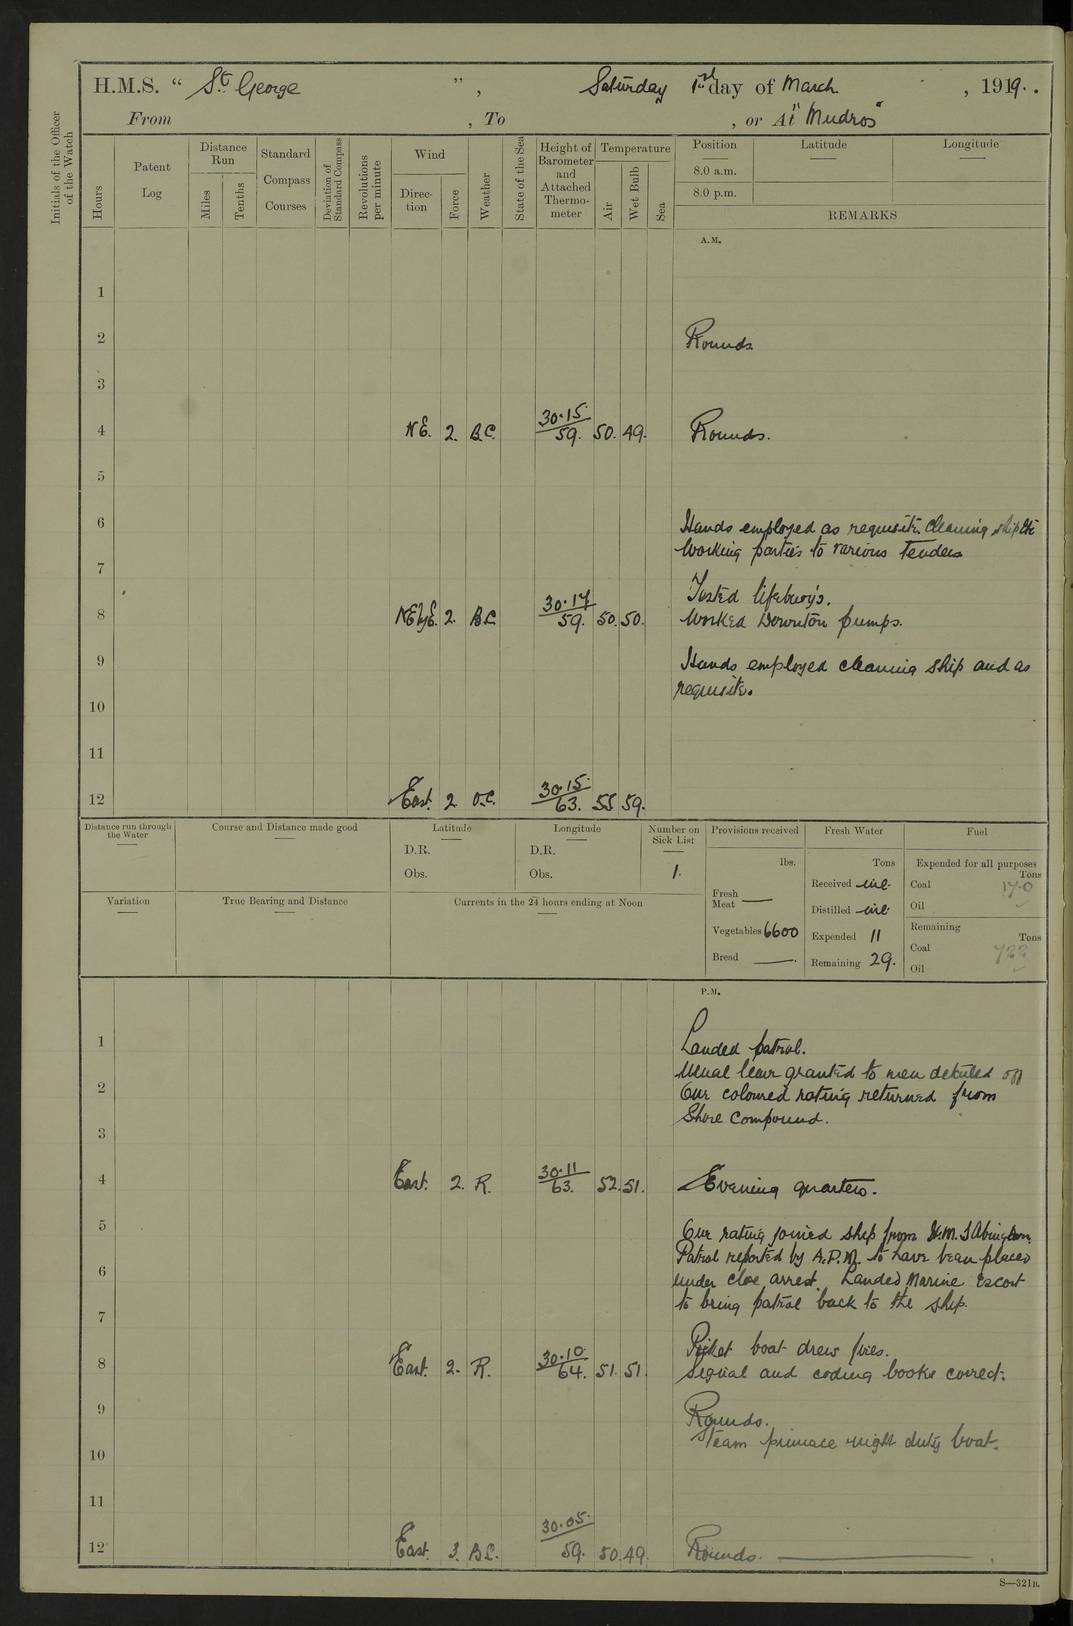 H.M.S. “ St. George ”, Saturday 1st day of March, 1919.
From , To , or At "Mudros"
Initials of the Officer of the Watch
Hours
Patent Log
Distance Run
Miles
Tenths
Standard Compass Courses
Deviation of Standard Compass
Revolutions per minute
Wind
Direction
Force
Weather
State of the Sea
Height of Barometer and Attached Thermometer
Temperature
Air
Wet Bulb
Sea
Position Latitude Longitude
8.0 a.m.
8.0 p.m.
REMARKS
A.M.
1
2 Rounds
3
4 NE. 2. B.C. 30.15/59. 50. 49. Rounds.
5
6 Hands employed as requisite. Cleaning ship etc
Working parties to various Tenders
7
Tested lifebuoys.
8 NEbyE. 2. BC 30.17/59. 50. 50. Worked Downton pumps.
9 Hands employed cleaning ship and as
requisite.
10
11
12 East. 2 O.C. 30.15/63. 55 59.
Distance run through the Water
Course and Distance made good
Latitude
D.R.
Obs.
Longitude
D.R.
Obs.
Number on Sick List
1.
Provisions received
lbs.
Fresh Meat —
Vegetables 6600
Bread —.
Fresh Water
Tons
Received nil
Distilled nil
Expended 11
Remaining 29.
Fuel
Expended for all purposes
Tons
Coal 17.0
Oil
Remaining
Tons
Coal
Oil
Variation
True Bearing and Distance
Currents in the 24 hours ending at Noon
P.M.
1 Landed patrol.
Usual leave granted to men detailed off
2 One coloured rating returned from
Shore Compound.
3
4 East. 2. R. 30.11/63. 52. 51. Evening quarters.
5 One rating joined ship from H.M.S Abingdon.
Patrol reported by A.P.M. to have been placed
6 under close arrest. Landed Marine Escort
to bring patrol back to the ship.
7
Picket boat drew fires.
8 East. 2. R. 30.10/64. 51. 51. Signal and coding books correct.
9 Rounds.
Steam pinnace night duty boat.
10
11
12 East. 3. B.C. 30.05/59. 50. 49. Rounds.
S—321B.